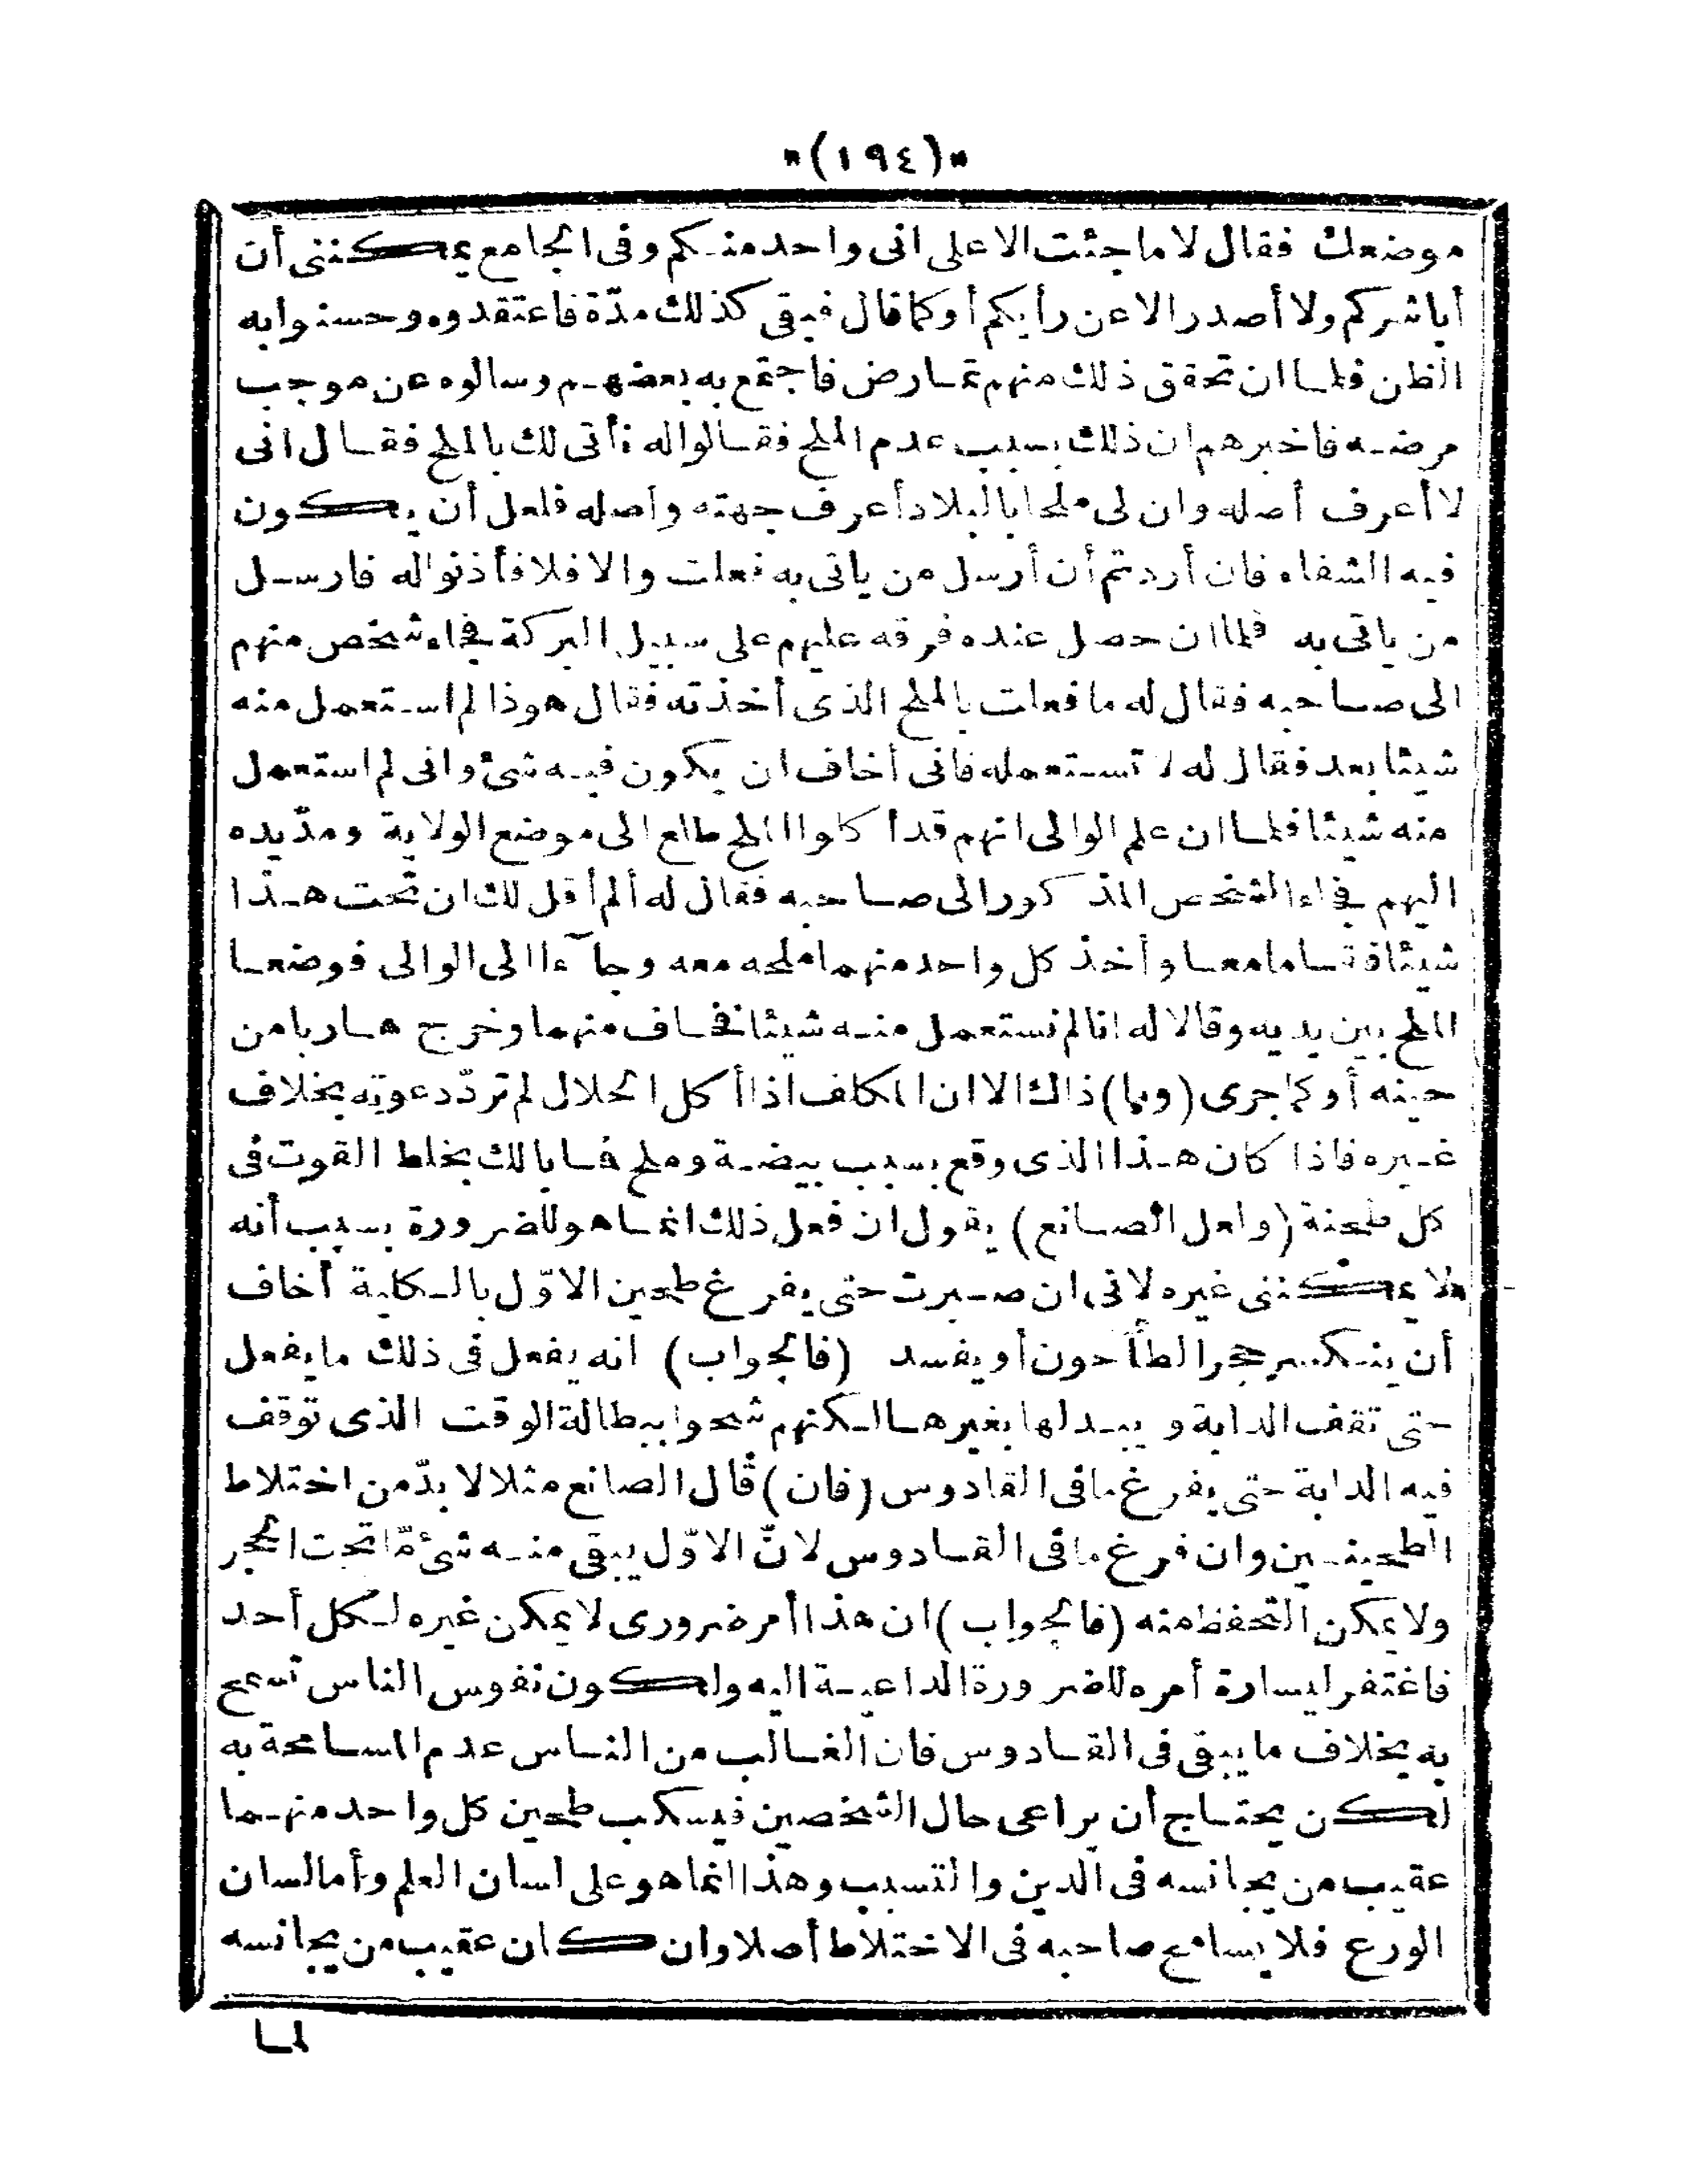 *(١٩٤)*
موضعك فقال لا ما جئت الا على انى واحد منكم وفى الجامع يمكننى أن
أباشركم ولا أصدر الا عن رأيكم أو كما قال فبقى كذلك مدّة فاعتقدوه وحسنوا به
الظن فلما ان تحقق ذلك منهم تمارض فاجتمع به بعضهم وسالوه عن موجب
مرضه فاخبرهم ان ذلك بسبب عدم الملح فقالوا له نأتى لك بالملح فقال انى
لا أعرف أصله وان لى ملحا بالبلاد أعرف جهته وأصله فلعل أن يكون
فيه الشفاء فان أردتم أن أرسل من ياتى به فعلت والا فلا فأذنوا له فارسل
من ياتى به فلما ان حصل عنده فرقه عليهم على سبيل البركة فجاء شخص منهم
الى صاحبه فقال له ما فعلت بالملح الذى أخذته فقال هو ذا لم استعمل منه
شيئا بعد فقال له لا تستعمله فانى أخاف ان يكون فيه شئ وانى لم استعمل
منه شيئا فلما ان علم الوالى انهم قد أكلوا الملح طلع الى موضع الولاية ومدّ يده
اليهم فجاء الشخص المذكور الى صاحبه فقال له ألم أقل لك ان تحت هذا
شيئا فقاما معا وأخذ كل واحد منهما ملحه معه وجاآ الى الوالى فوضعا
الملح بين يديه وقالا له انا لم نستعمل منه شيئا فخاف منهما وخرج هاربا من
حينه أو كما جرى (وما) ذاك الا ان المكلف اذا أكل الحلال لم تردّ دعوته بخلاف
غيره فاذا كان هذا الذى وقع بسبب بيضة وملح فما بالك بخلط القوت فى
كل طحنة (ولعل الصانع) يقول ان فعل ذلك انما هو للضرورة بسبب أنه
لا يمكننى غيره لانى ان صبرت حتى يفرغ طحين الاوّل بالكلية أخاف
أن ينكسر حجر الطاحون أو يفسد (فالجواب) انه يفعل فى ذلك ما يفعل
حتى تقف الدابة ويبدلها بغيرها لكنهم شحوا ببطالة الوقت الذى توقف
فيه الدابة حتى يفرغ ما فى القادوس (فان) قال الصانع مثلا لا بدّ من اختلاط
الطحينين وان فرغ ما فى القادوس لانّ الاوّل يبقى منه شئ مّا تحت الحجر
ولا يمكن التحفظ منه (فالجواب) ان هذا أمر ضرورى لا يمكن غيره لكل أحد
فاغتفر ليسارة أمره للضرورة الداعية اليه ولكون نفوس الناس تسمح
به بخلاف ما يبقى فى القادوس فان الغالب من الناس عدم المسامحة به
لكن يحتاج أن يراعى حال الشخصين فيسكب طحين كل واحد منهما
عقيب من يجانسه فى الدين والتسبب وهذا انما هو على لسان العلم وأما لسان
الورع فلا يسامح صاحبه فى الاختلاط أصلا وان كان عقيب من يجانسه
لما